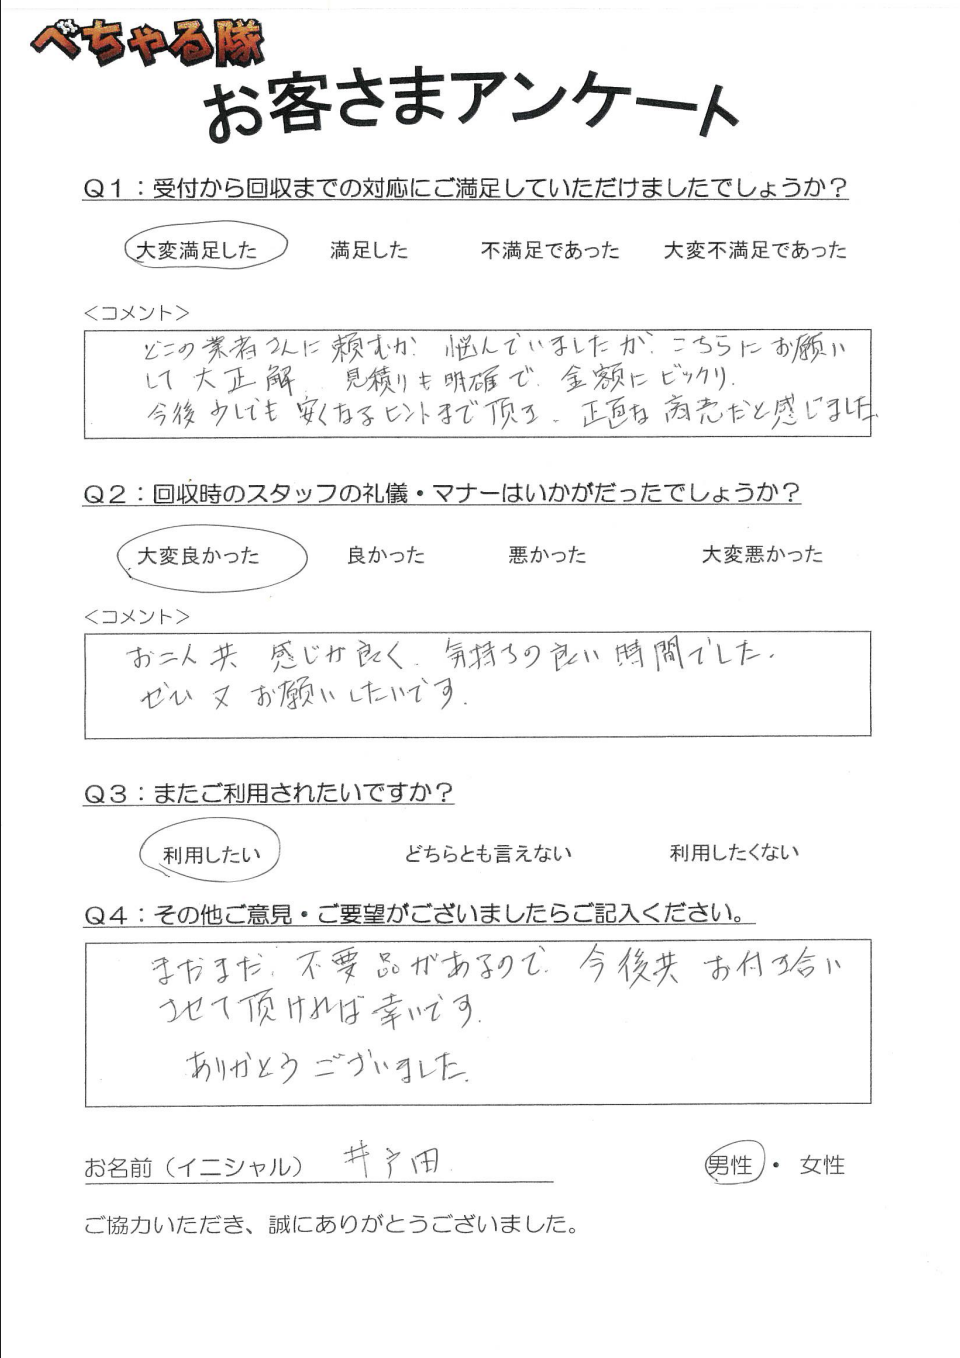 べちゃる隊
お客さまアンケート
Q1：受付から回収までの対応にご満足していただけましたでしょうか？
大変満足した 満足した 不満足であった 大変不満足であった
＜コメント＞
どこの業者さんに頼むか 悩んでいましたが、こちらにお願い
して大正解、見積りも明確で、金額にビックリ。
今後少しでも安くなるヒントまで頂き、正直な商売だと感じました
Q2：回収時のスタッフの礼儀・マナーはいかがだったでしょうか？
大変良かった 良かった 悪かった 大変悪かった
＜コメント＞
お二人共 感じが良く、気持ちの良い時間でした。
ぜひ又お願いしたいです。
Q3：またご利用されたいですか？
利用したい どちらとも言えない 利用したくない
Q4：その他ご意見・ご要望がございましたらご記入ください。
まだまだ、不要品があるので、今後共 お付き合い
させて頂ければ幸いです。
ありがとうございました。
お名前（イニシャル） 井戸田
男性・女性
ご協力いただき、誠にありがとうございました。